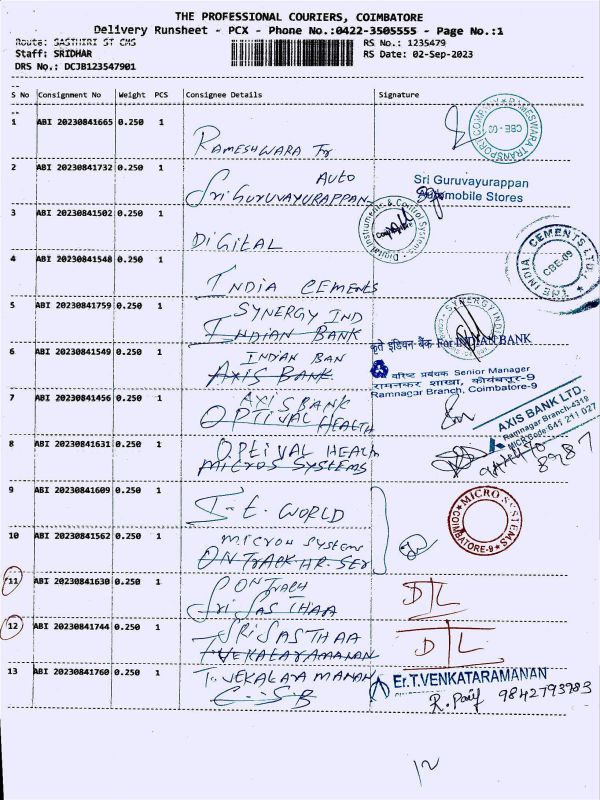 THE PROFESSIONAL COURIERS, COIMBATORE
Delivery Runsheet - PCX - Phone No.:0422-3505555 - Page No.:1
Route: SASTHIRI ST CMS
Staff: SRIDHAR
DRS No.: DCJB123547901
RS No.: 1235479
RS Date: 02-Sep-2023
S No Consignment No Weight PCS Consignee Details Signature
1 ABI 20230841665 0.250 1
RAMESHWARA Tr
RAMESWARA TRANSPORT COMPANY
CBE - 02
2 ABI 20230841732 0.250 1
AUTO
Sri GURUVAYURAPPAN
Sri Guruvayurappan
Automobile Stores
3 ABI 20230841502 0.250 1
DIGITAL
Digital Instruments & Control Systems
Coimbatore
4 ABI 20230841548 0.250 1
INDIA CEMENTS
THE INDIA CEMENTS LTD.
CBE-09
5 ABI 20230841759 0.250 1
SYNERGY IND
INDIAN BANK
SYNERGY INDIA
6 ABI 20230841549 0.250 1
INDIAN BAN
AXIS BANK
कृते इंडियन बैंक For INDIAN BANK
वरिष्ठ प्रबंधक Senior Manager
रामनकर शाखा, कोयंबत्तूर-9
Ramnagar Branch, Coimbatore-9
7 ABI 20230841456 0.250 1
AXIS BANK
OPTIVAL HEALTH
AXIS BANK LTD.
Ramnagar Branch-4319
MICR Code:641 211 027
8 ABI 20230841631 0.250 1
OPTIVAL HEALTH
MICROS SYSTEMS
9 ABI 20230841609 0.250 1
I-t. WORLD
MICRO SYSTEMS
COIMBATORE-9
10 ABI 20230841562 0.250 1
MICROS SYSTEMS
ONTRACK HR. SER
11 ABI 20230841630 0.250 1
ONTRACK
Sri SASTHAA
D/L
12 ABI 20230841744 0.250 1
SRI SASTHAA
T.VEKALAYAMANAN
D/L
13 ABI 20230841760 0.250 1
T. VEKALAYA MANAN
Er.T.VENKATARAMANAN
9842793983
12